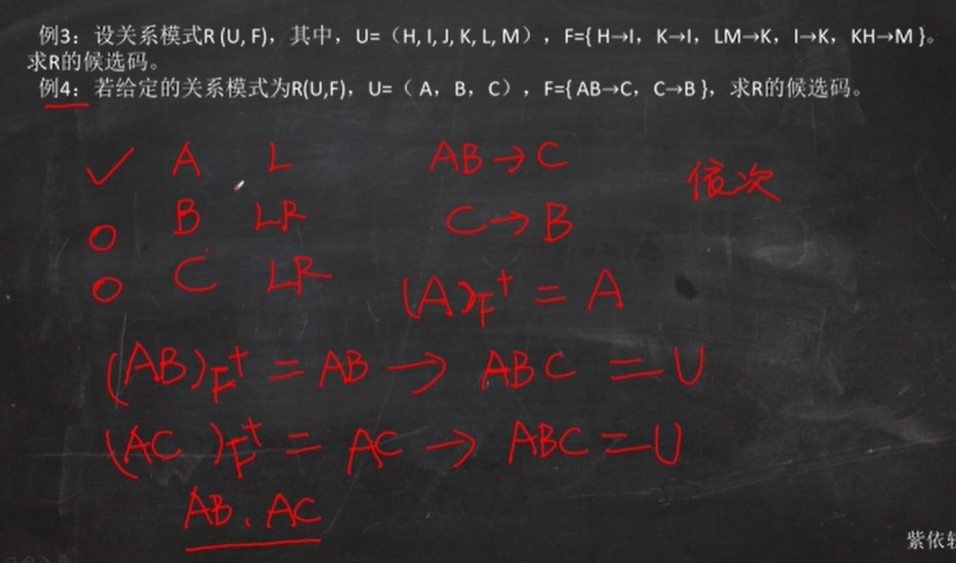 例3：设关系模式R (U, F)，其中，U=（H, I, J, K, L, M），F={ H→I，K→I，LM→K，I→K，KH→M }。
求R的候选码。
例4：若给定的关系模式为R(U,F)，U=（ A，B，C），F={ AB→C，C→B }，求R的候选码。
✓ A L AB→C 依次
○ B LR C→B
○ C LR (A)F⁺ = A
(AB)F⁺ = AB → ABC = U
(AC)F⁺ = AC → ABC = U
AB、AC
紫依轩